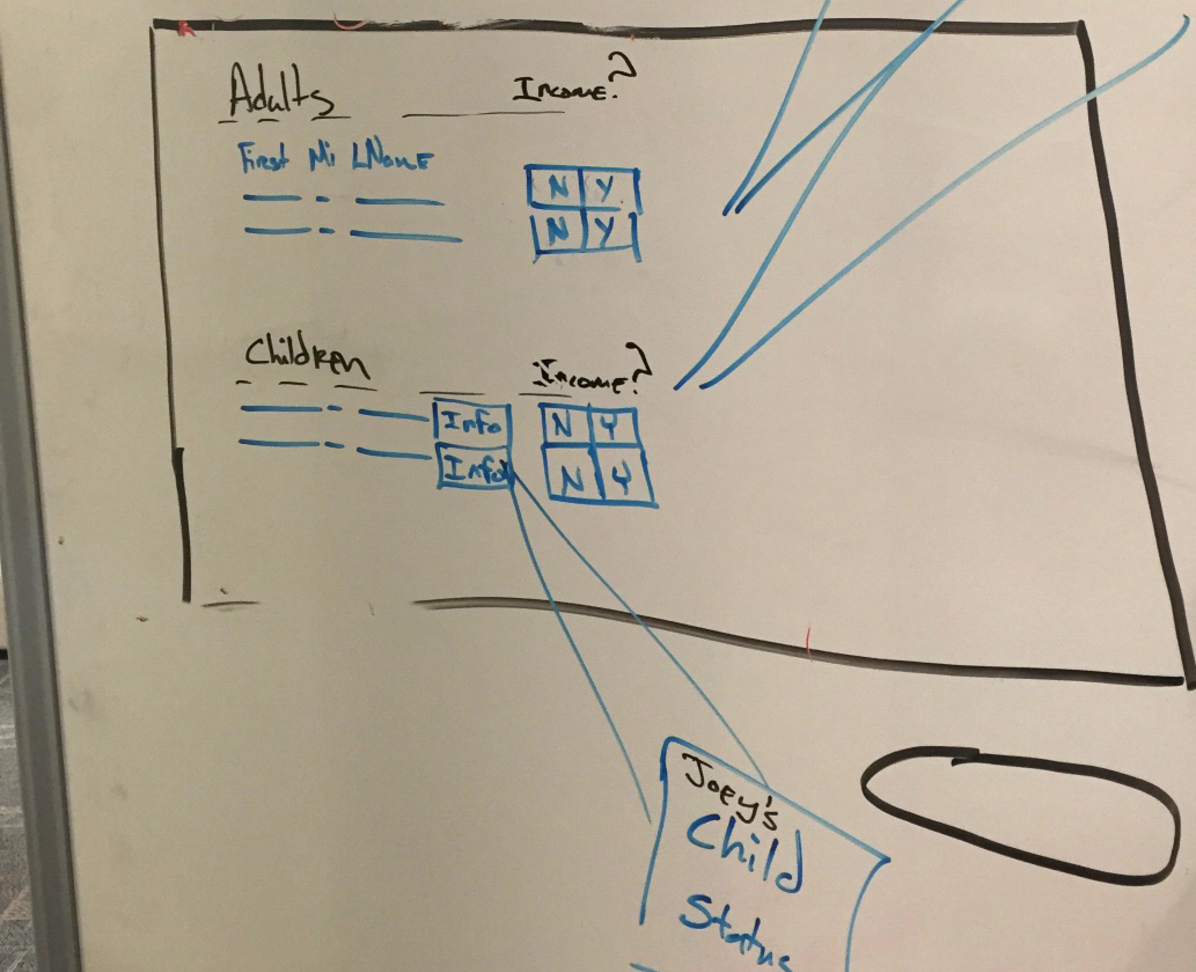 Adults Income?
First Mi LName
N Y
N Y
Children Income?
Info N Y
Info N Y
Joey's
Child
Status